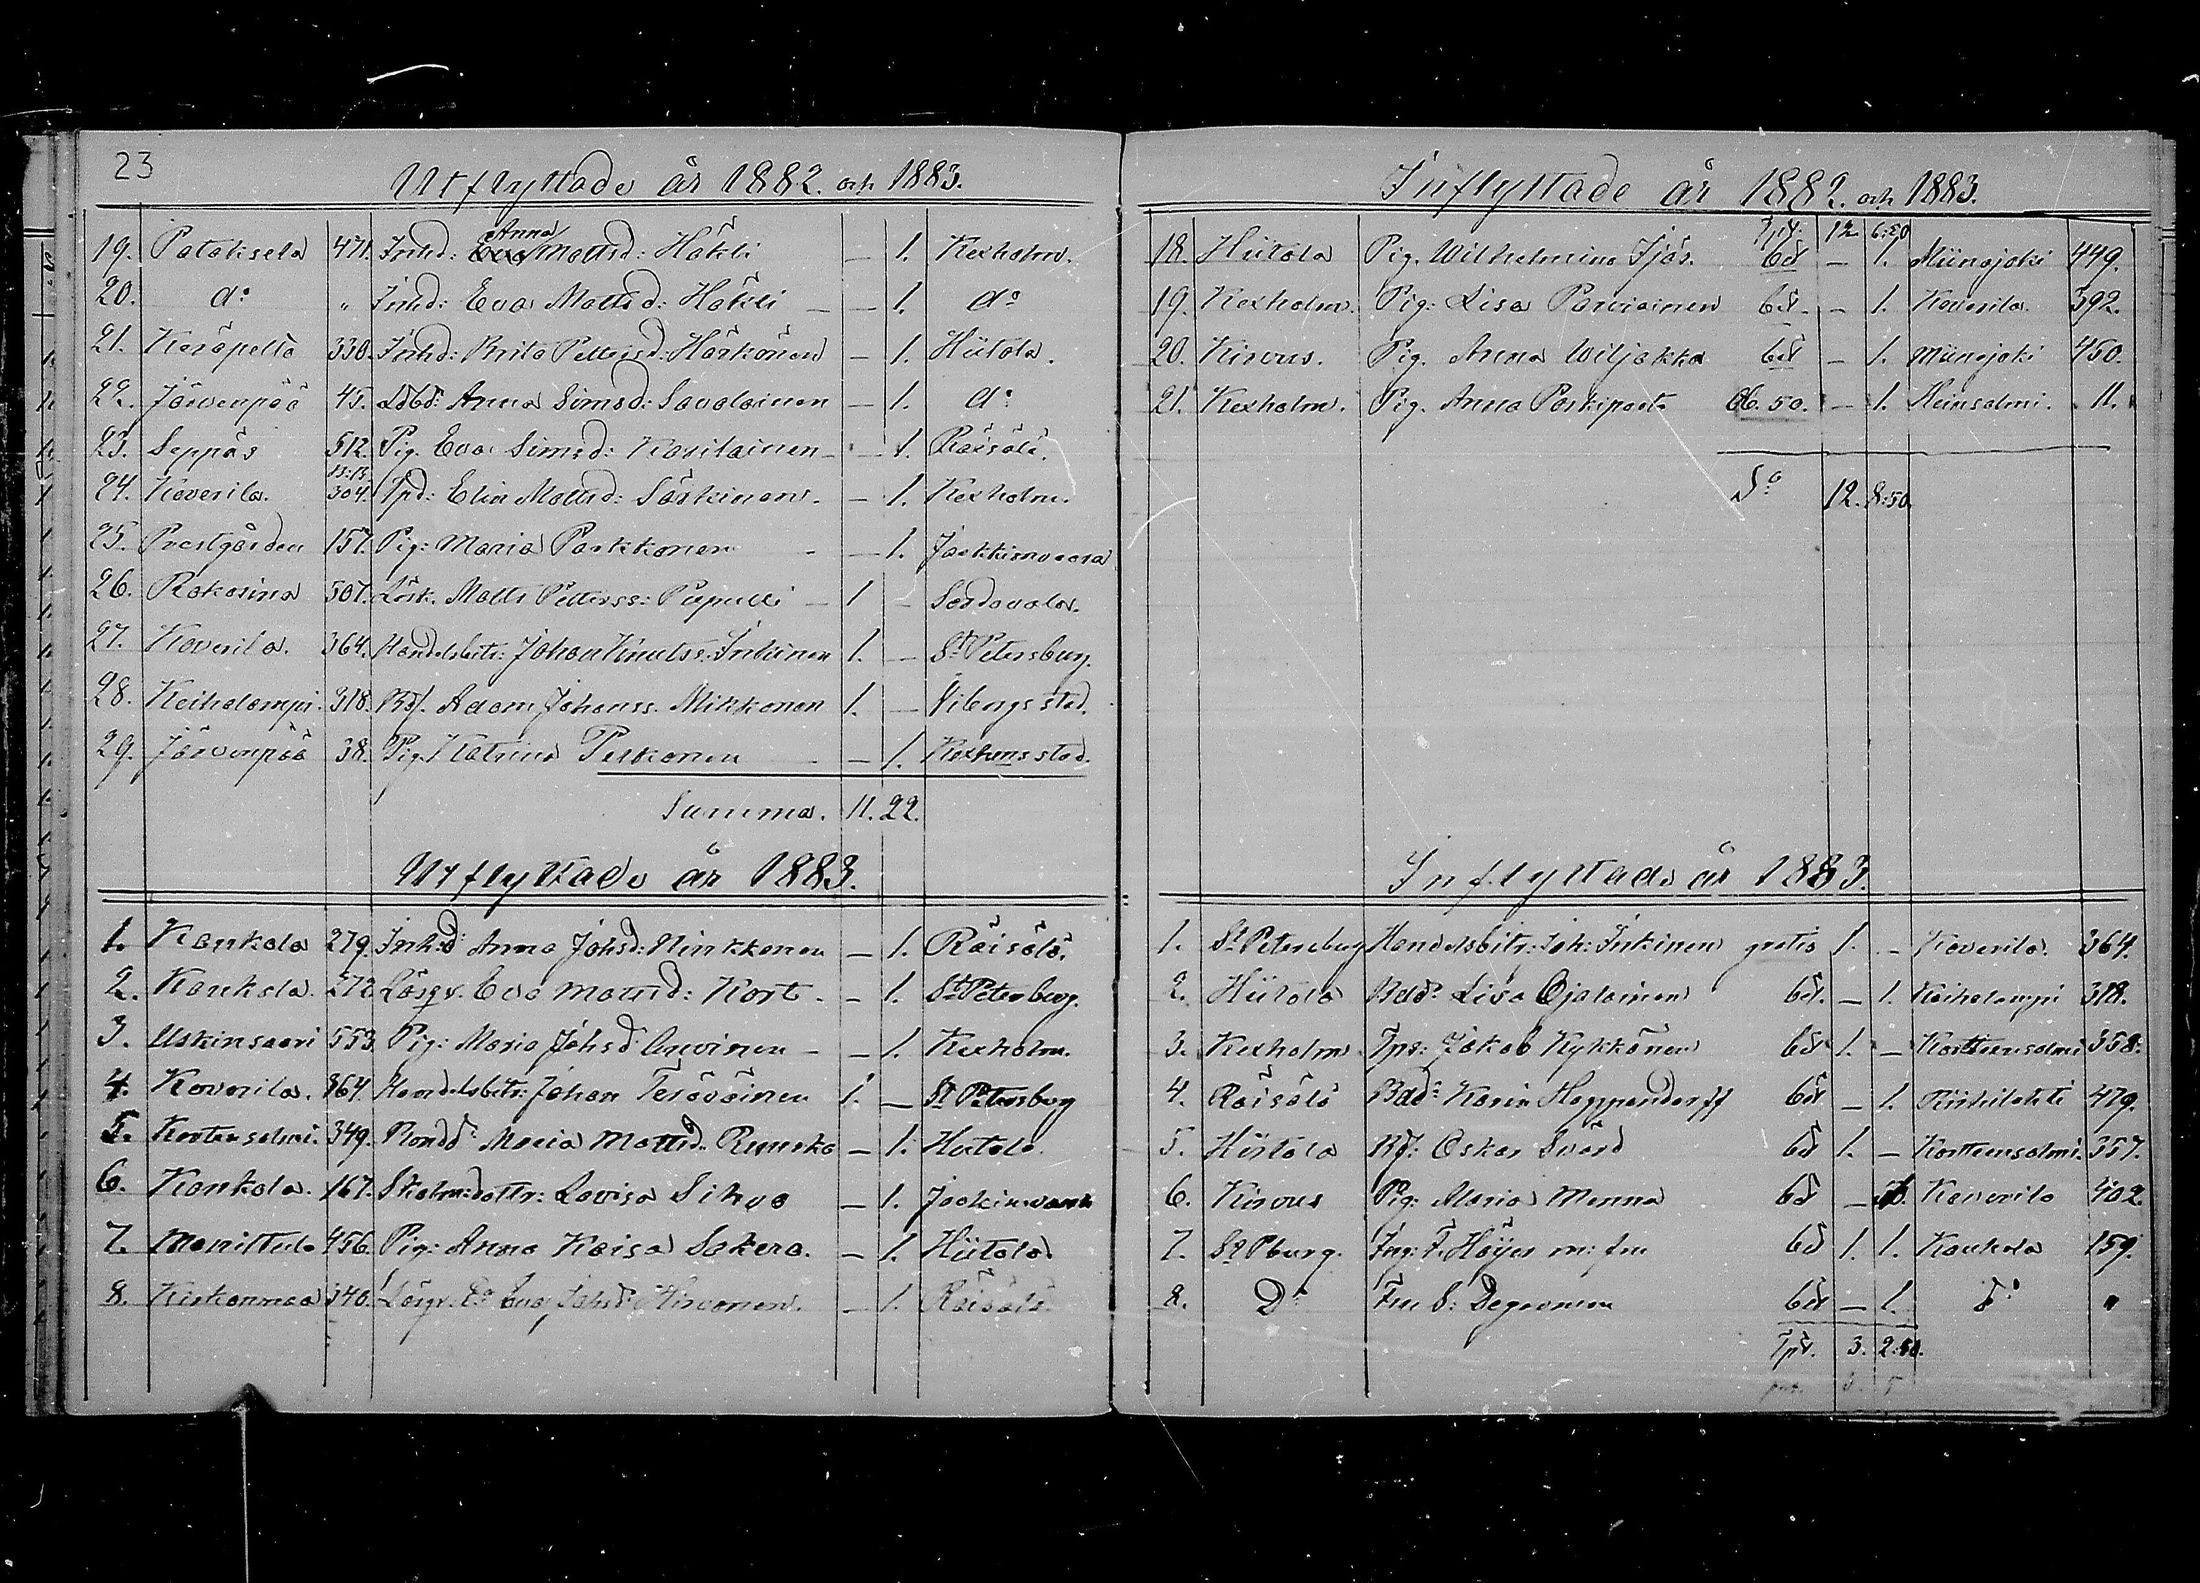 23
Utflyttade år 1882. och 1883.
19. Pataksela 471. Inhd: Anna Mattsd: Häkli — 1. Kexholm.
20. do " Inhd: Eva Mattsd: Häkli — 1. do
21. Keräpelto 330. Inhd: Brita Pettersd: Härkönen — 1. Hiitola.
22. Järvenpää 45. Anna Simsd: Savolainen — 1. do
23. Seppäs 512. Pig. Eva Simsd: — 1. Räisälä.
24. Koverila. 304. Tpd: Elin Mattsd: Särkinen. — 1. Kexholm.
25. Prestgården 157. Pig: Maria Parkkonen — 1. Jaakkimvaara
26. Rakosina 507. Lösk. Matts Petterss: 1 — Sordavala.
27. Koverila. 364. Handelsbitr: Johan Knutss: Inkinen 1. — St Petersburg.
28. Keiholampi. 318. Rdf. Adam Johanss. Mikkonen 1. — Viborgs stad.
29. Järvenpää 38. Pig. Katrina Peskonen — 1. Kexholms stad.
Summa. 11. 22.
Utflyttade år 1883.
1. Kaukola 279. Inh:d Anna Johsd: Hinkkonen — 1. Räisälä.
2. Kaukola. 272 Lösqv. Eva Mattsd: Kort. — 1. St Petersburg.
3. Uskinsaari 553 Pig: Maria Johsd — 1. Kexholm.
4. Koverila. 364. Handelsbitr: Johan Teräväinen 1. — St Petersburg
5. Kortensalmi. 349. Maria Mattsd. — 1. Hiitola.
6. Kaukola. 167. Lovisa Sihvo — 1. Jaakimvaara
7. 456. Pig: Anna Kaisa Sakera. — 1. Hiitola
8. 340. Lösqv. Eva Johsd: Hirvonen. — 1. Räisälä.
Inflyttade år 1882. och 1883.
12 6:50
18. Hiitola Pig. Wilhelmina Ijäs. 6d — 1. Miinajoki 449.
19. Kexholm. Pig: Lisa Parviainen 6d. — 1. Koverila. 392.
20. Kirvus. Pig. Anna Wiljakka 6d — 1. Miinajoki 450.
21. Kexholm. Pig. Anna Paskiparta 6. 50. — 1. Heinsalmi. 11.
So 12. 8:50.
Inflyttade år 1883.
1. St Petersburg Handelsbitr: Joh: Inkinen gratis 1. — Koverila. 364.
2. Hiitola Lisa Ojalainen 6d. — 1. Keiholampi 318.
3. Kexholm. Jakob Kykkänen 6d 1. — Korttensalmi 358.
4. Räisälä Karin Hoppendorff 6d — 1. Riihilahti 479.
5. Hiitola Rdf: Oskar Svärd 6d 1. — Korttensalmi. 357.
6. Kirvus Pig: Maria Menna 6d — Koverila 402
7. St Pburg. Ing: F. Höijer m: fru 6d 1. 1. Kaukola 159.
8. Do Fru S: 6d — 1. Do "
Tpt. 3. 2:50.